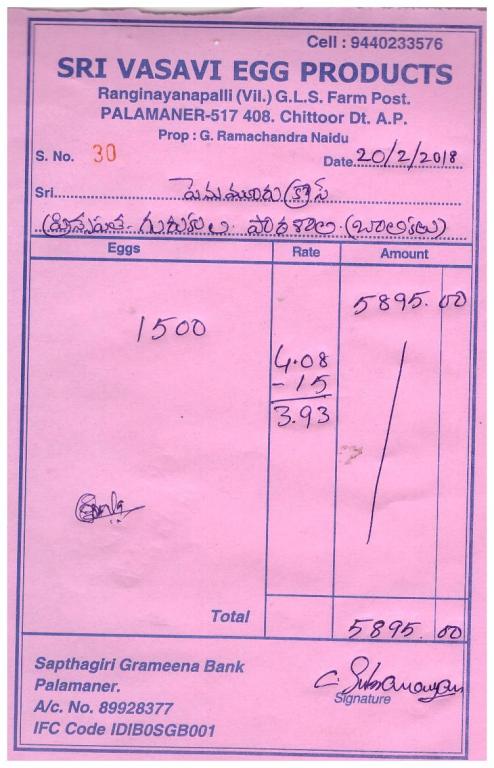 Cell : 9440233576
SRI VASAVI EGG PRODUCTS
Ranginayanapalli (Vil.) G.L.S. Farm Post.
PALAMANER-517 408. Chittoor Dt. A.P.
Prop : G. Ramachandra Naidu
S. No. 30 Date 20/2/2018
Sri. పెనుమూరు క్రాస్
గురుకుల పాఠశాల (బాలికలు)
Eggs Rate Amount
5895.00
1500
4.08
-15
3.93
Total 5895.00
Sapthagiri Grameena Bank
Palamaner.
A/c. No. 89928377
IFC Code IDIB0SGB001
Signature